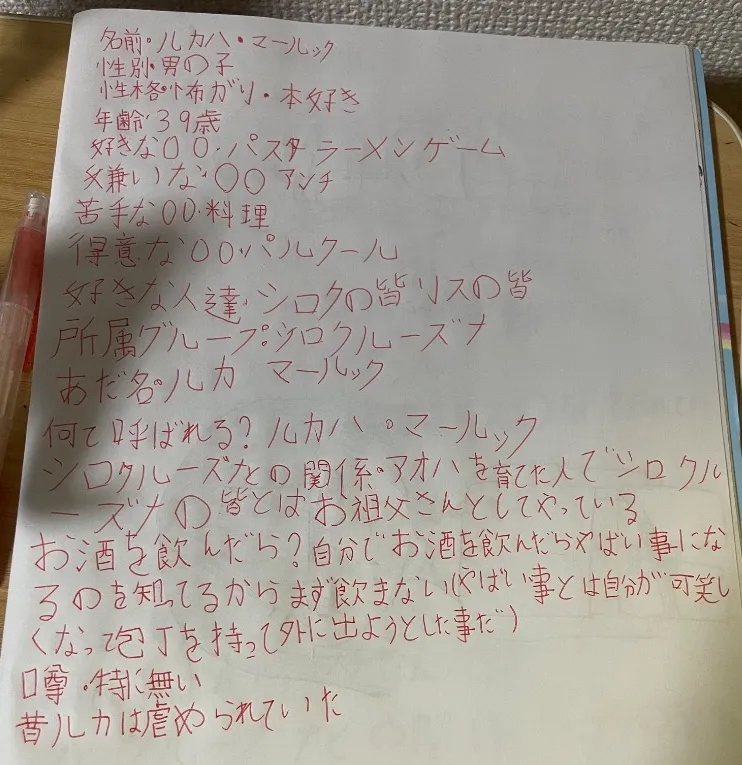 名前・ルカハ・マールック
性別・男の子
性格・怖がり・本好き
年齢・39歳
好きな〇〇・パスタ ラーメン ゲーム
嫌いな・〇〇 アンチ
苦手な〇〇・料理
得意な〇〇・パルクール
好きな人達・シロクの皆 リスの皆
所属グループ:シロクルーズナ
あだ名・ルカ マールック
何て呼ばれる?ルカハ・マールック
シロクルーズナとの関係・アオハを育てた人でシロクル
ーズナの皆とはお祖父さんとしてやっている
お酒を飲んだら?自分でお酒を飲んだらやばい事にな
るのを知ってるからまず飲まない(やばい事とは自分が可笑し
くなって包丁を持って外に出ようとした事だ)
噂・特に無い
昔ルカは虐められていた